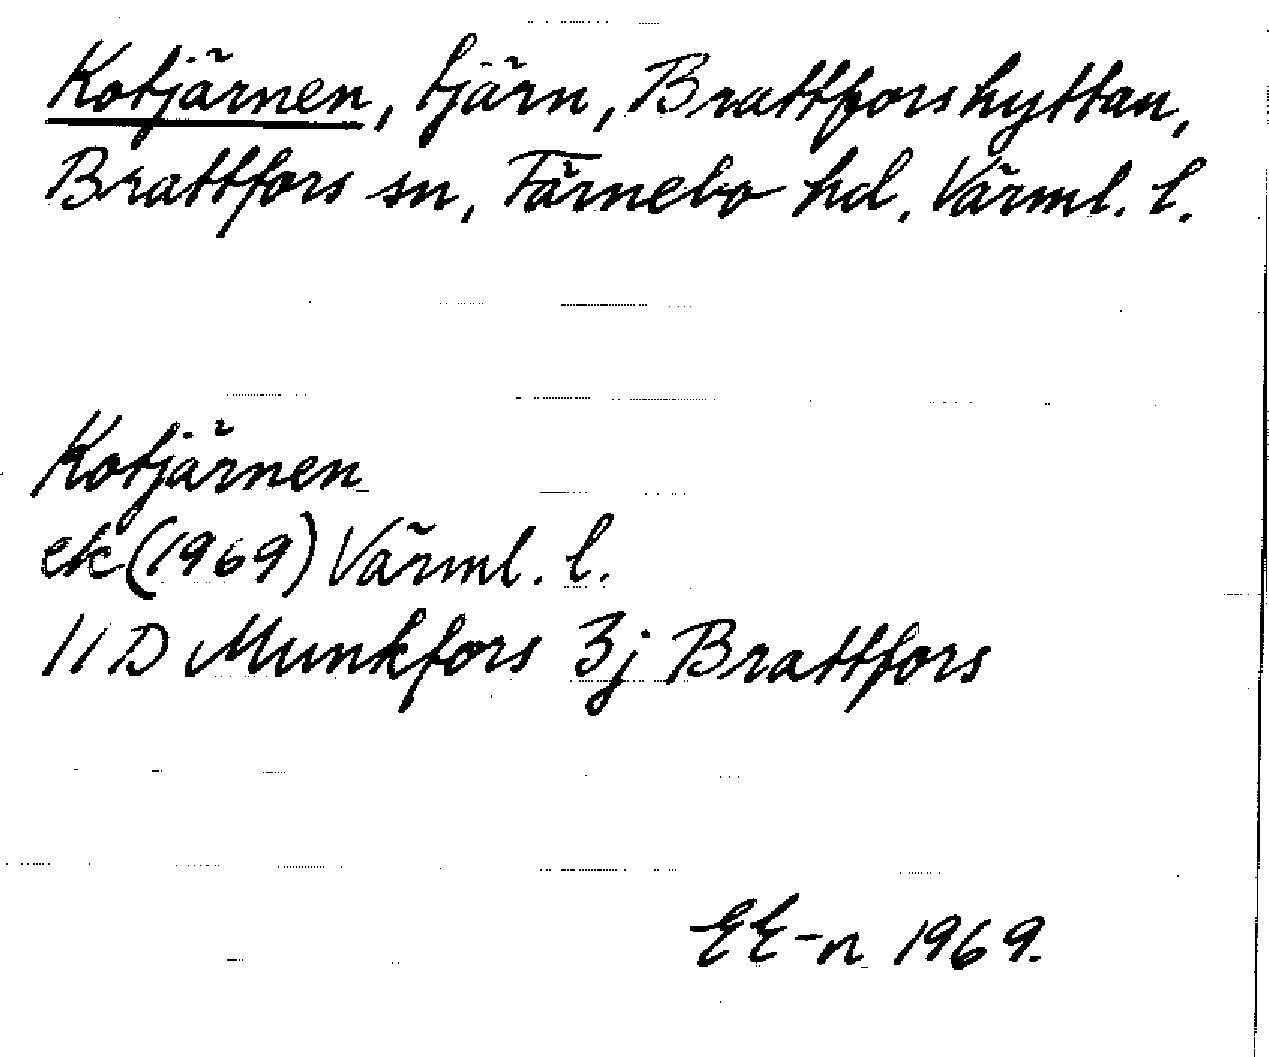 Kotjärnen, tjärn, Brattforshyttan,
Brattfors sn, Färnebo hd, Värml. l.
Kotjärnen
ek (1969) Värml. l.
11D Munkfors 3j Brattfors
EE-n 1969.